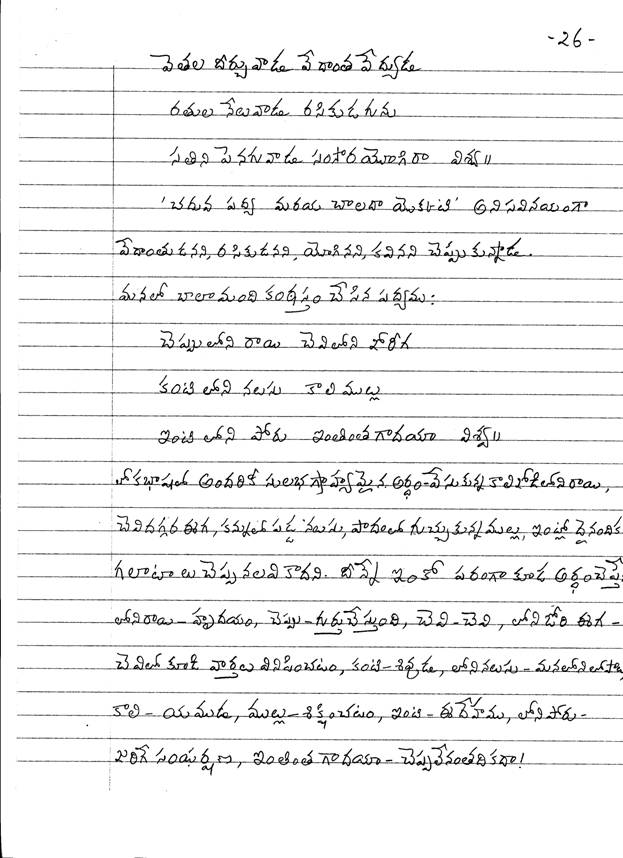 -26-
వెతల దీర్చువాడు వేదాంత వేద్యుడు
రతుల నేలువాడు రసికుడగును
సతిని పెనగువాడు సంసారయోగిరా విశ్వ॥
'చదువ పద్య మరయ చాలదా యొకటి' అని సవినయంగా
వేదాంతుడనని, రసికుడనని, యోగినని, కవినని చెప్పుకున్నాడు.
మనలో చాలామంది కంఠస్తం చేసిన పద్యము:
చెప్పులోని రాయి చెవిలోని జోరీగ
కంటిలోని నలుసు కాలి ముల్లు
ఇంటి లోని పోరు ఇంతింత గాదయా విశ్వ॥
లోకభాషలో అందరికీ సులభగ్రాహ్యమైన అర్ధం-వేసుకున్న కాలిజోడులోని రాయి,
చెవిదగ్గర ఈగ, కన్నులో పడ్డ నలుసు, పాదంలో గుచ్చుకున్న ముల్లు, ఇంట్లో దైనందిక
గలాటాలు చెప్ప నలవి కాదని. దీన్నే ఇంకో పరంగా కూడ అర్ధంచెప్తే
లోనిరాయి-హృదయం, చెప్పు-గుర్తుచేస్తుంది, చెవి-చెవి, లోని జోరీ ఈగ-
చెవిలో కూడి వార్తలు వినిపించటం, కంటి-శివుడు, లోని నలుసు-మనలోని
కాలి-యముడు, ముల్లు-శిక్షించటం, ఇంటి-ఈ దేహము, లోని పోరు-
జరిగే సంఘర్షణ, ఇంతింత గాదయా-చెప్పలేనంతది కదా!